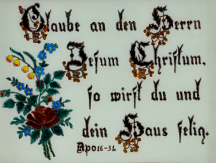 Glaube an den Herrn
Jesum Christum,
so wirst du und
dein Haus selig.
Apo 16-31.